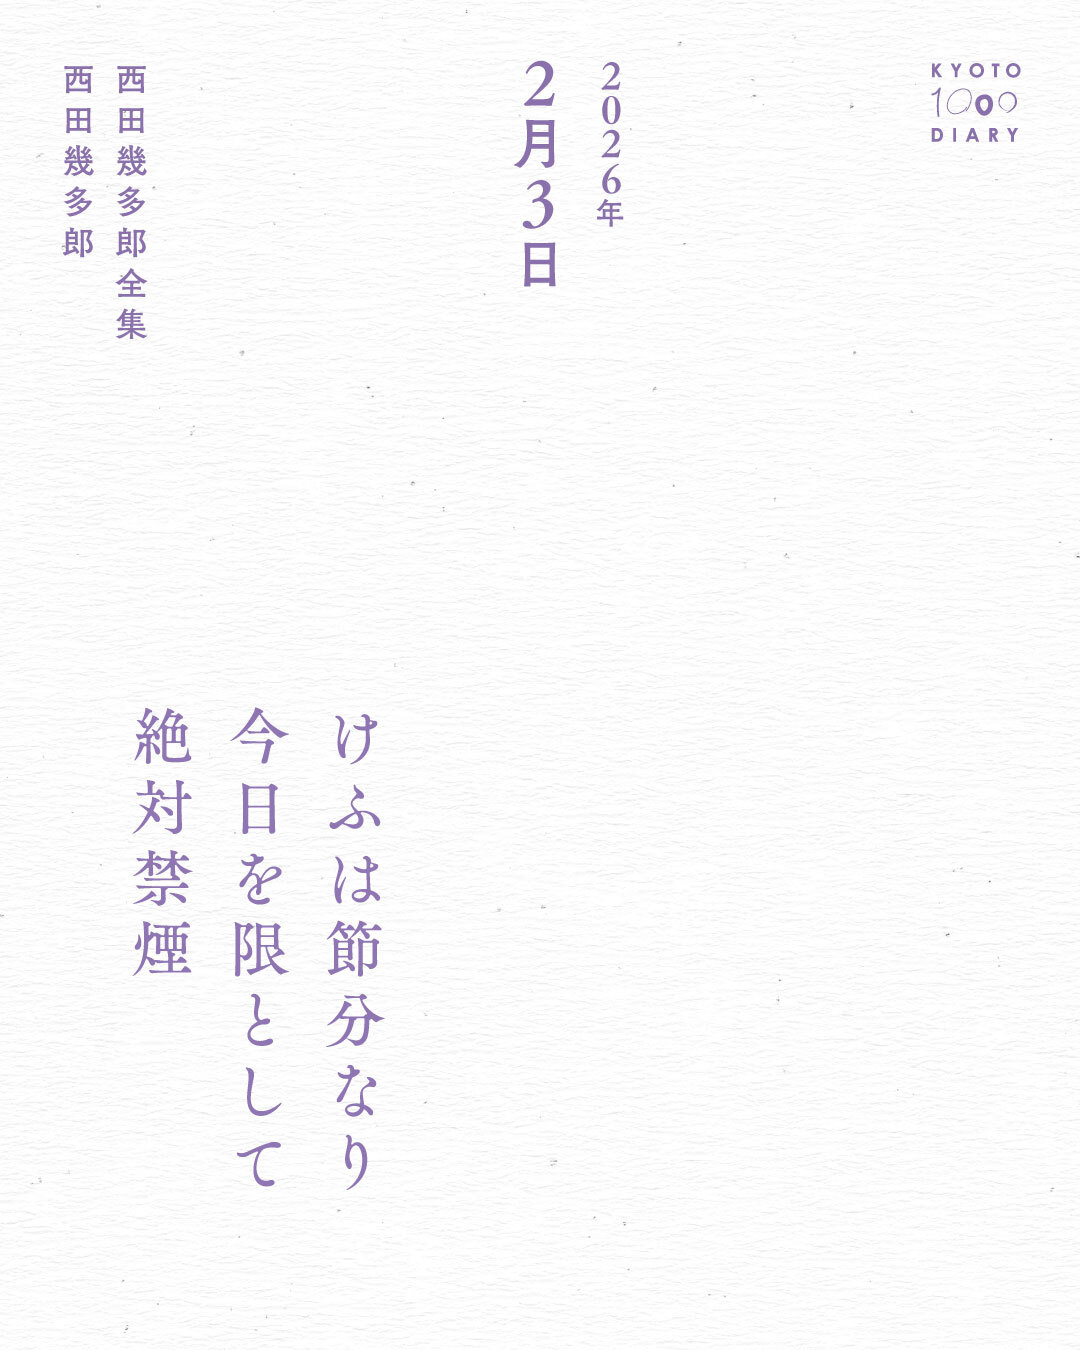 KYOTO
1000
DIARY
2026年
2月3日
西田幾多郎全集
西田幾多郎
けふは節分なり
今日を限として
絶対禁煙